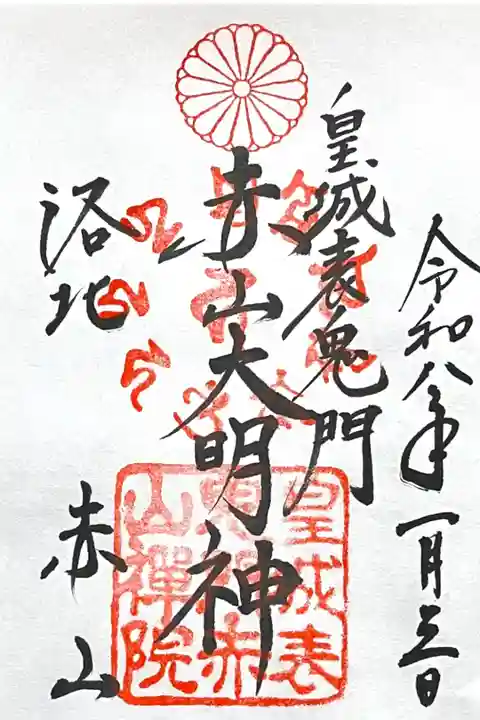 令和八年一月三日
皇城表鬼門
赤山大明神
洛北
赤山
皇城表
鬼門赤
山禅院